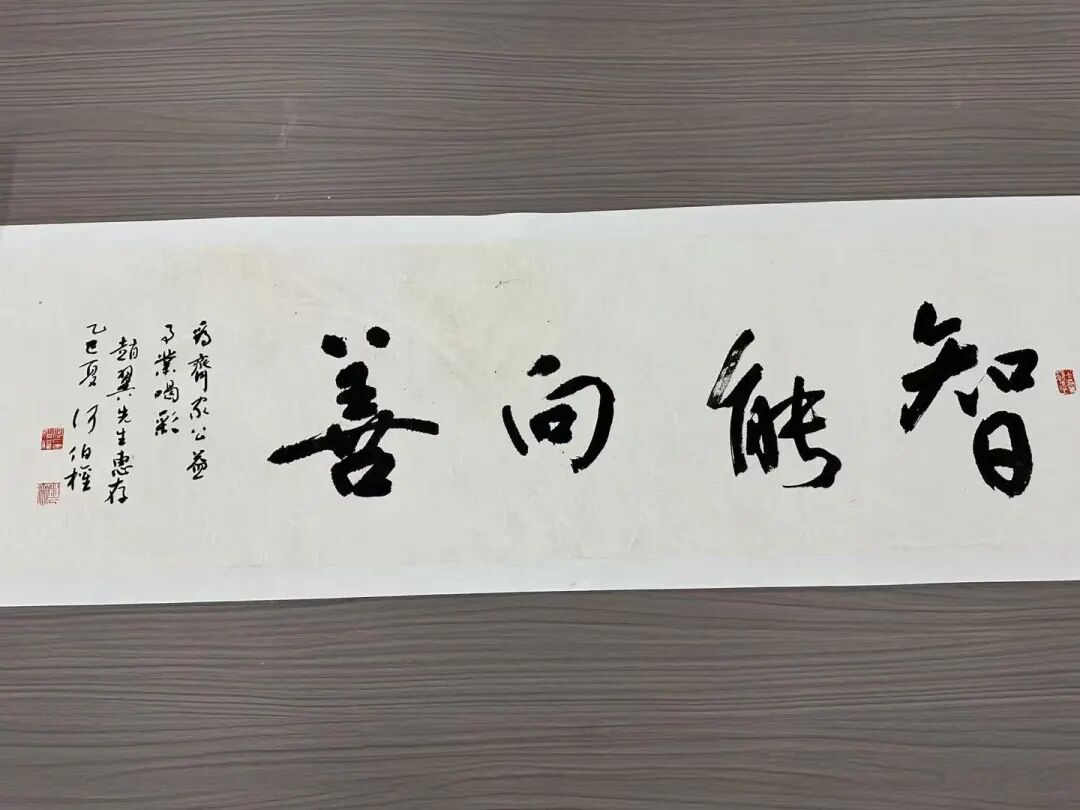 智能向善
為齊家公益
事業喝彩
趙翼先生惠存
乙巳夏 何伯權